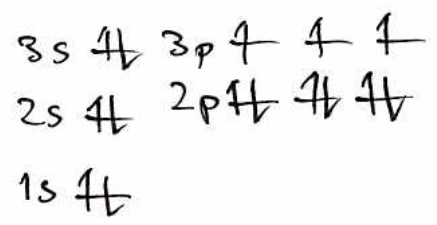 3s ⥮ 3p ↿ ↿ ↿
2s ⥮ 2p ⥮ ⥮ ⥮
1s ⥮